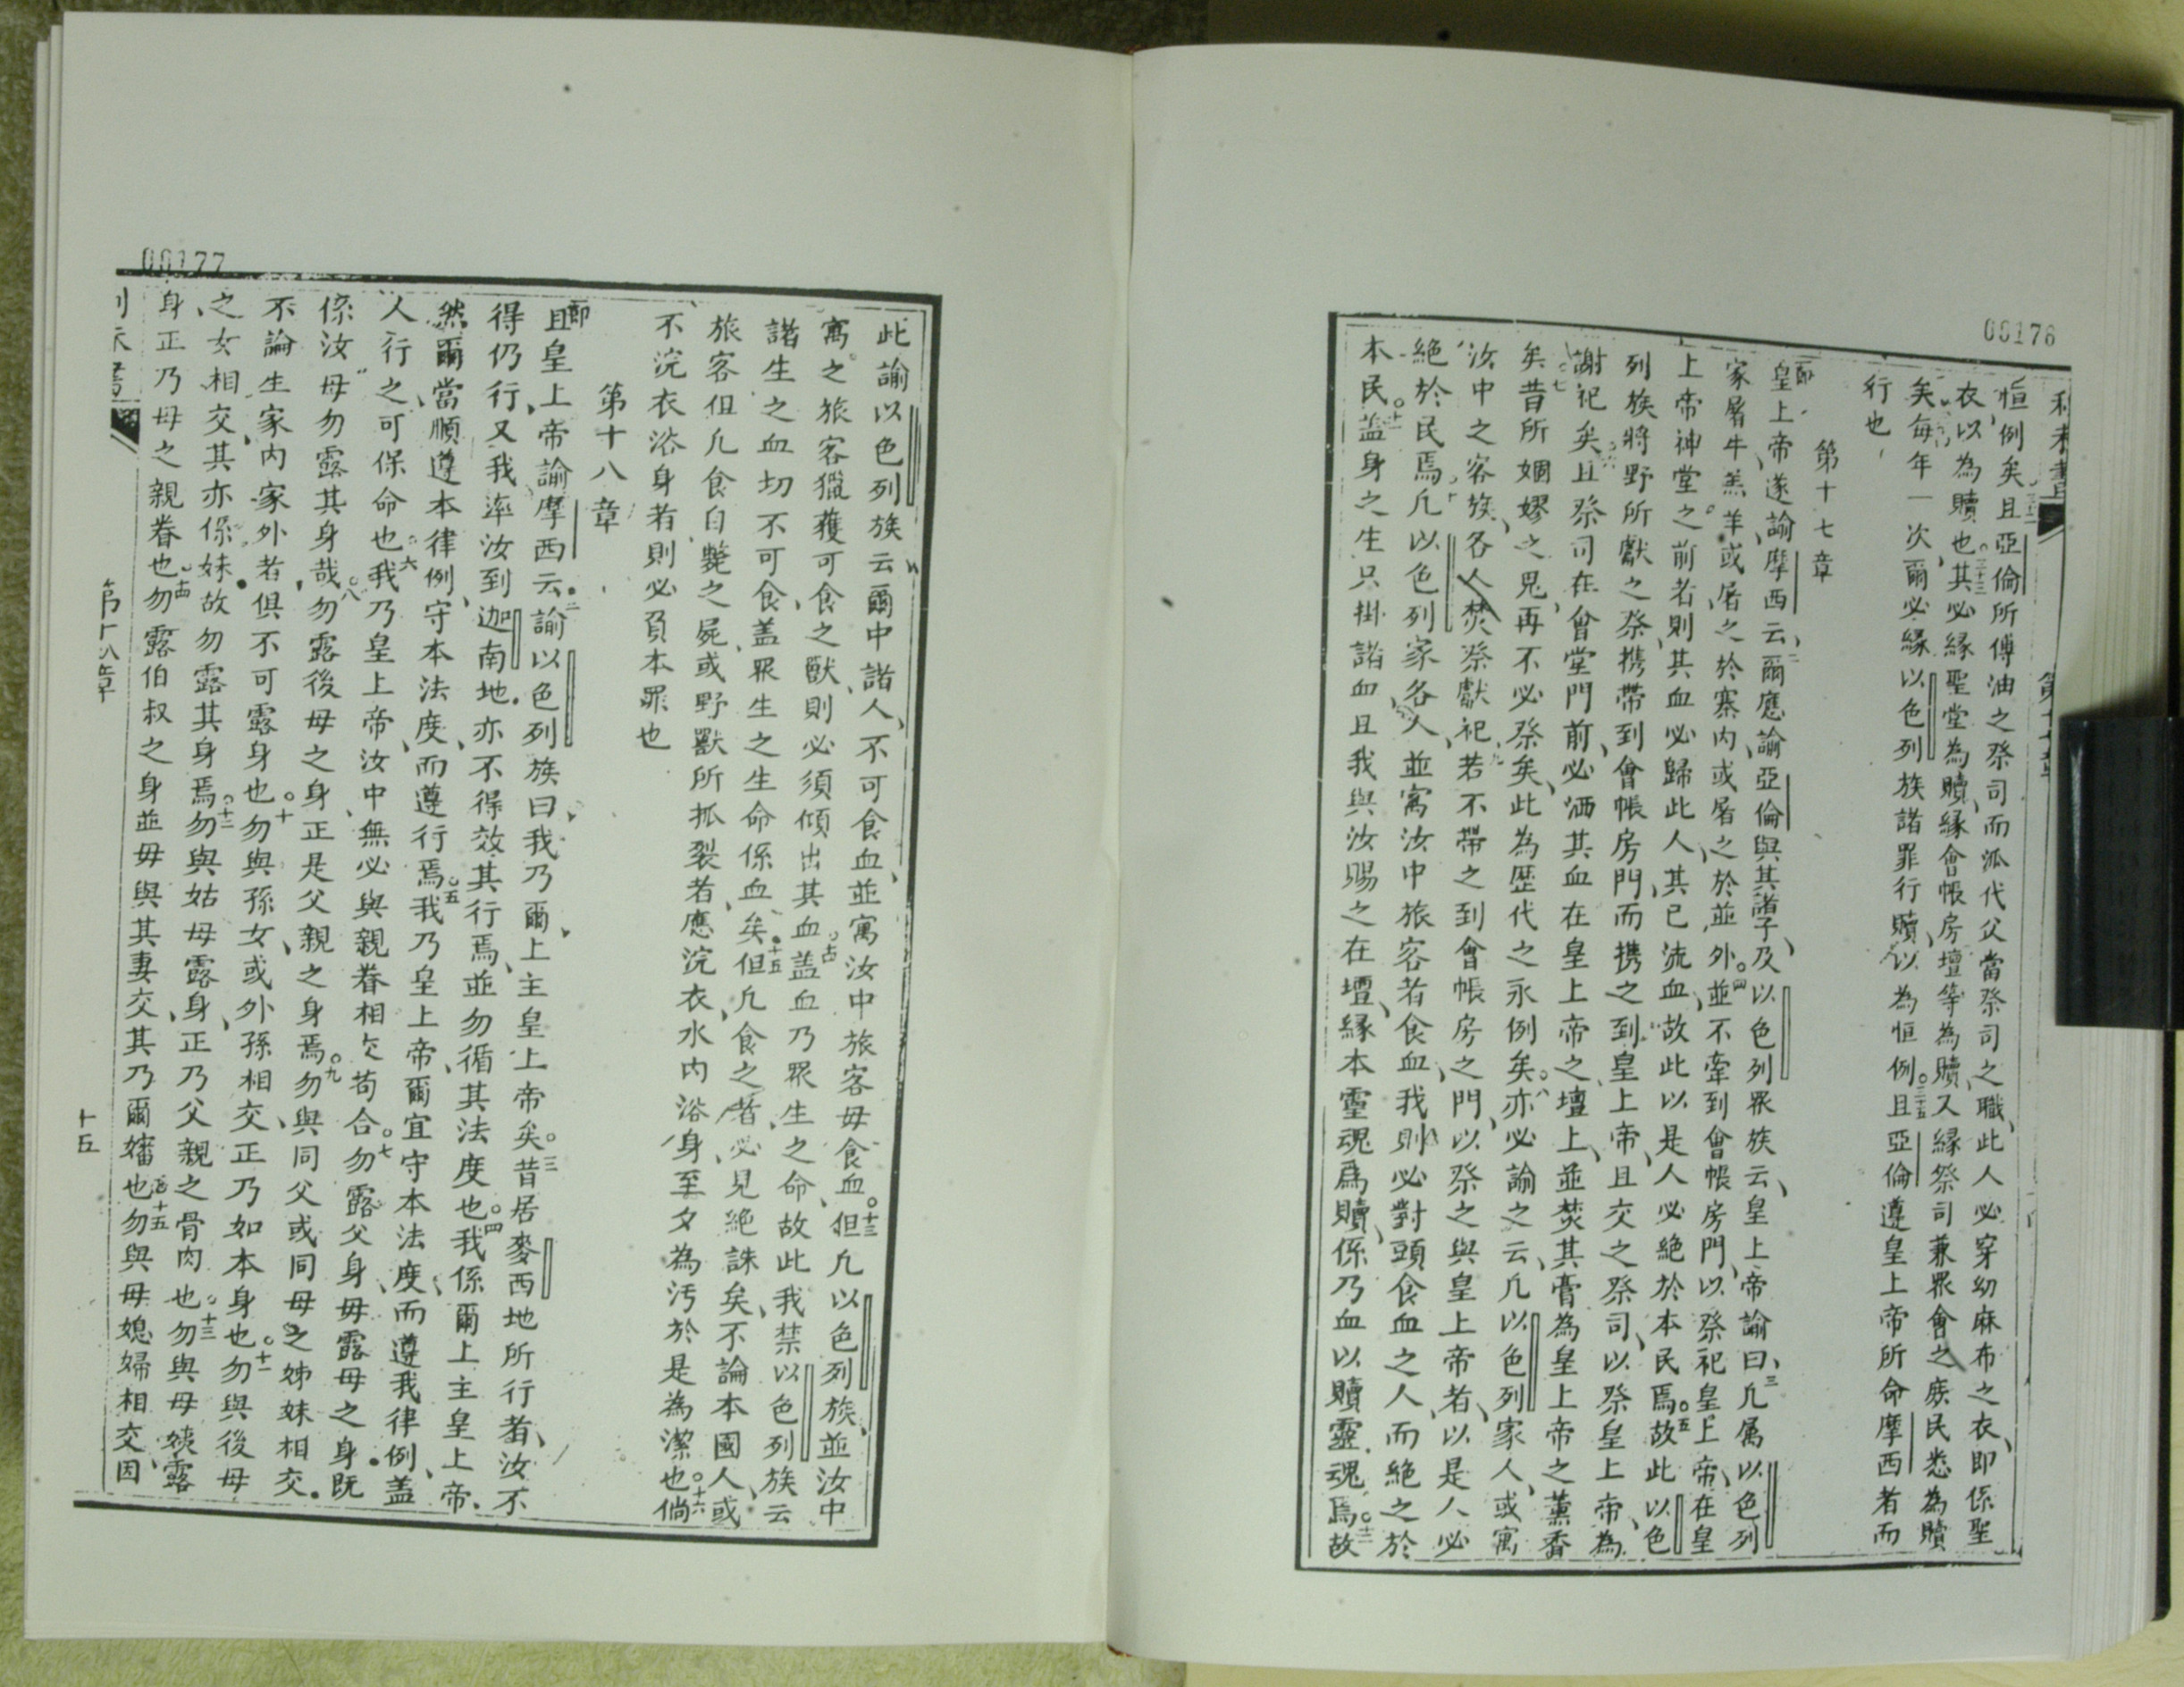 00176
恒例矣且三十二亞倫所傅油之祭司而派代父當祭司之職此人必穿幼麻布之衣即係聖
衣以為贖也三十三其必緣聖堂為贖緣會帳房壇等為贖又緣祭司兼眾會之族民悉為贖
矣每年一次爾必緣以色列族諸罪行贖以為恒例三十五且亞倫遵皇上帝所命摩西者而
行也
第十七章
皇上帝遂諭摩西云二爾應諭亞倫與其諸子及以色列眾族云皇上帝諭曰三凡属以色列
家屠牛羔羊或屠之於寨內或屠之於並外四並不牽到會帳房門以祭祀皇上帝在皇
上帝神堂之前者則其血必歸此人其已流血故此以是人必絕於本民焉五故此以色
列族將野所獻之祭携帶到會帳房門而携之到皇上帝且交之祭司以祭皇上帝為
謝祀矣六且祭司在會堂門前必洒其血在皇上帝之壇上並焚其膏為皇上帝之薰香
矣七昔所姻嫪之鬼再不必祭矣此為歷代之永例矣八亦必諭之云凡以色列家人或寓
汝中之客旅各人焚祭獻祀九若不帶之到會帳房之門以祭之與皇上帝者以是人必
絕於民焉十凡以色列家各人並寓汝中旅客者食血我則必對頭食血之人而絕之於
本民十一盖身之生只掛諸血且我與汝賜之在壇緣本靈魂爲贖係乃血以贖靈魂焉十二故
00177
此諭以色列族云爾中諸人不可食血並寓汝中旅客毋食血十三但凡以色列族並汝中
寓之旅客獵獲可食之獸則必須傾出其血十四盖血乃眾生之命故此我禁以色列族云
諸生之血切不可食盖眾生之生命係血矣十五但凡食之者必見絕誅矣不論本國人或
旅客但凡食自斃之屍或野獸所抓裂者應浣衣水內浴身至夕為污於是為潔也十六倘
不浣衣浴身者則必負本罪也
第十八章
且皇上帝諭摩西云二諭以色列族曰我乃爾上主皇上帝矣三昔居麥西地所行者汝不
得仍行又我率汝到迦南地亦不得效其行焉並勿循其法度也四我係爾上主皇上帝
然爾當順遵本律例守本法度而遵行焉五我乃皇上帝爾宜守本法度而遵我律例盖
人行之可保命也六我乃皇上帝汝中無必與親眷相欠苟合七勿露父身毋露母之身既
係汝母勿露其身哉八勿露後母之身正是父親之身焉九勿與同父或同母之姊妹相交
不論生家內家外者俱不可露身也十勿與孫女或外孫相交正乃如本身也十一勿與後母
之女相交其亦係妹故勿露其身焉十二勿與姑母露身正乃父親之骨肉也十三勿與母姨露
身正乃母之親眷也十四勿露伯叔之身並毋與其妻交其乃爾嬸也十五勿與母媳婦相交因
第十八章
十五